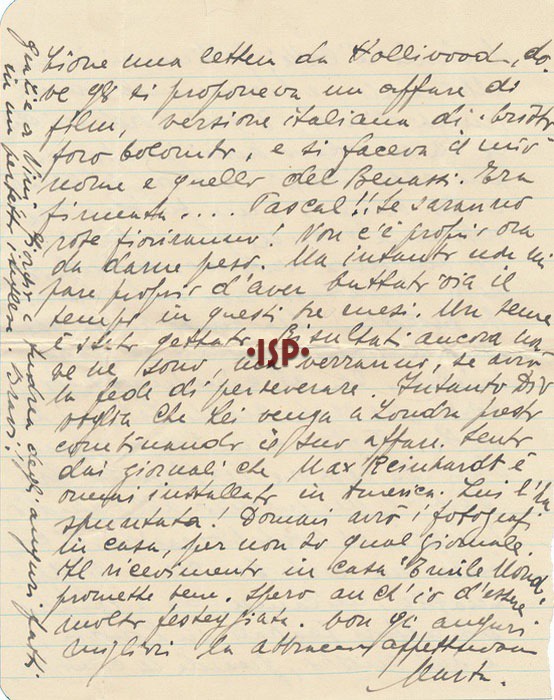 zione una lettera da Holliwood, do-
ve gli si proponeva un affare di
film, versione italiana di Cristo-
foro Colombo, e si faceva il mio
nome e quello del Benassi. Era
firmata .... Pascal!! Se saranno
rose fioriranno! Non c'è proprio ora
da darne peso. Ma intanto non mi
pare proprio d'aver buttato via il
tempo in questi tre mesi. Un seme
è stato gettato. Risultati ancora non
ve ne sono, ma verranno, se avrò
la fede di perseverare. Intanto Dio
voglia che Lei venga a Londra presto
continuando il suo affare. Sento
dai giornali che Max Reinhardt è
oramai installato in America. Lui l'ha
spuntata! Domani avrò i fotografi
in casa, per non so qual giornale.
Il ricevimento in casa Emile Mond
promette bene. Spero anch'io d'essere
molto festeggiata. Con gli auguri
migliori la abbraccio affettuosam
Marta.
Grazie a Nini, Giorgio e Andrea degli auguri fatti
in un perfetto inglese. Bravi!!
·ISP·